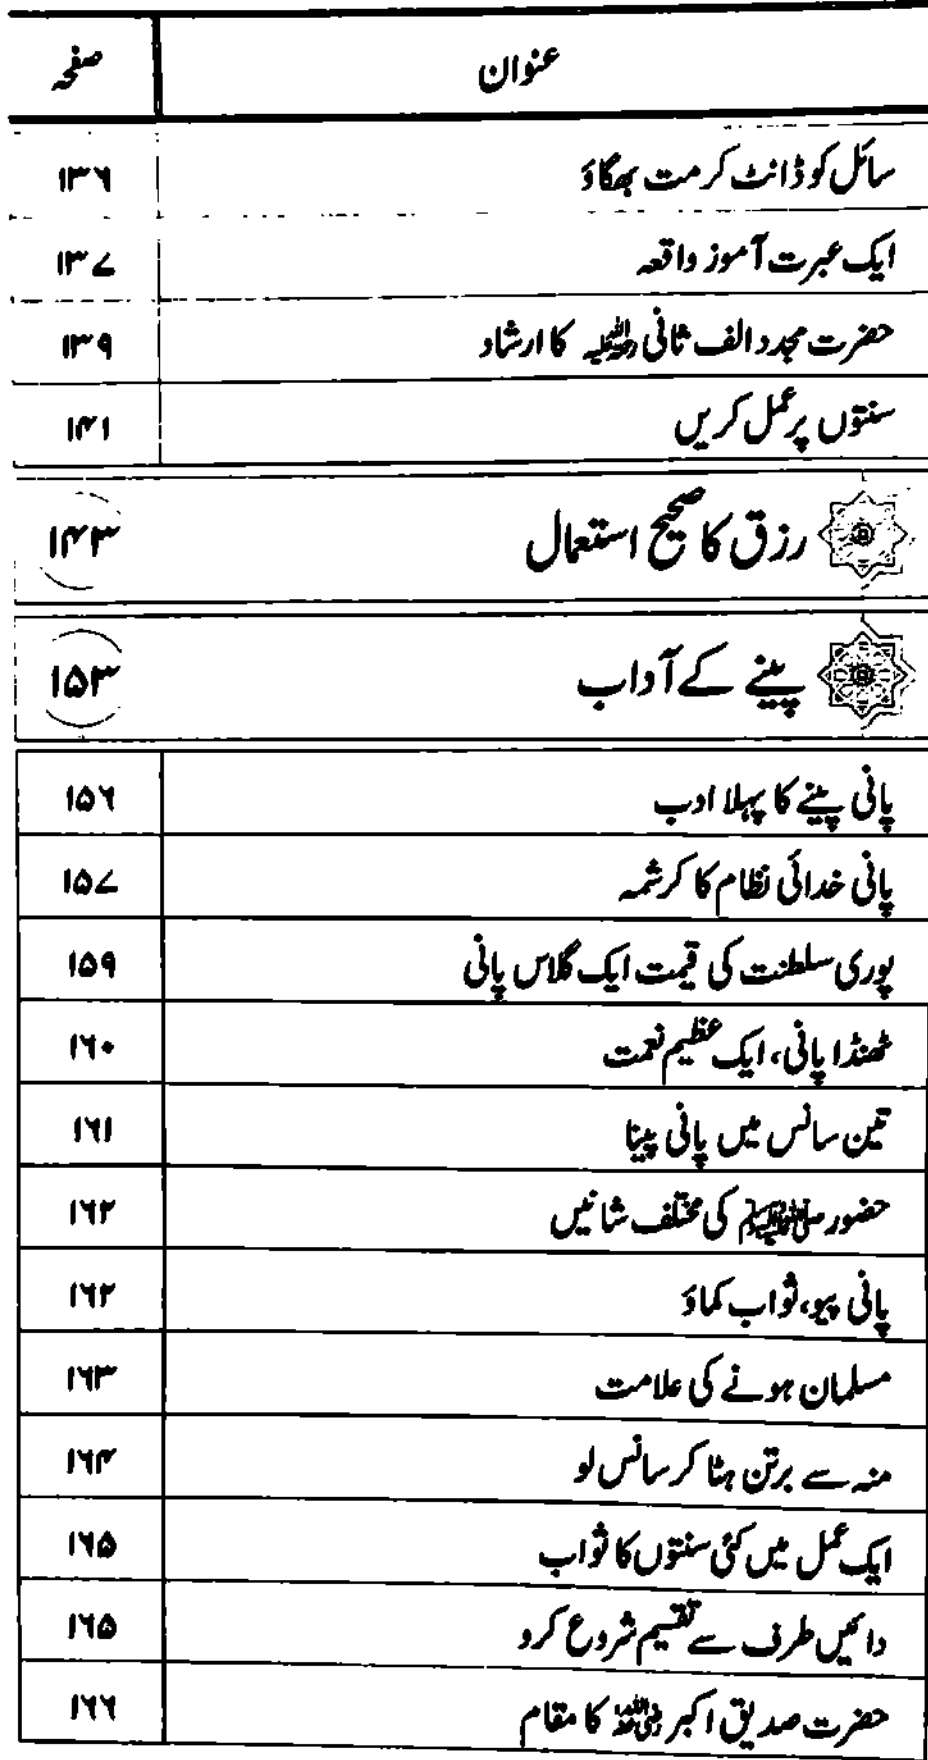 عنوان صفحہ
سائل کو ڈانٹ کر مت بھگاؤ ۱۳۶
ایک عبرت آموز واقعہ ۱۳۷
حضرت مجدد الف ثانی رحمۃ اللہ علیہ کا ارشاد ۱۳۹
سنتوں پر عمل کریں ۱۴۱
رزق کا صحیح استعمال ۱۴۳
پینے کے آداب ۱۵۳
پانی پینے کا پہلا ادب ۱۵۶
پانی خدائی نظام کا کرشمہ ۱۵۷
پوری سلطنت کی قیمت ایک گلاس پانی ۱۵۹
ٹھنڈا پانی، ایک عظیم نعمت ۱۶۰
تین سانس میں پانی پینا ۱۶۱
حضور صلی اللہ علیہ وسلم کی مختلف شانیں ۱۶۲
پانی پیو، ثواب کماؤ ۱۶۲
مسلمان ہونے کی علامت ۱۶۳
منہ سے برتن ہٹا کر سانس لو ۱۶۴
ایک عمل میں کئی سنتوں کا ثواب ۱۶۵
دائیں طرف سے تقسیم شروع کرو ۱۶۵
حضرت صدیق اکبر رضی اللہ عنہ کا مقام ۱۶۶